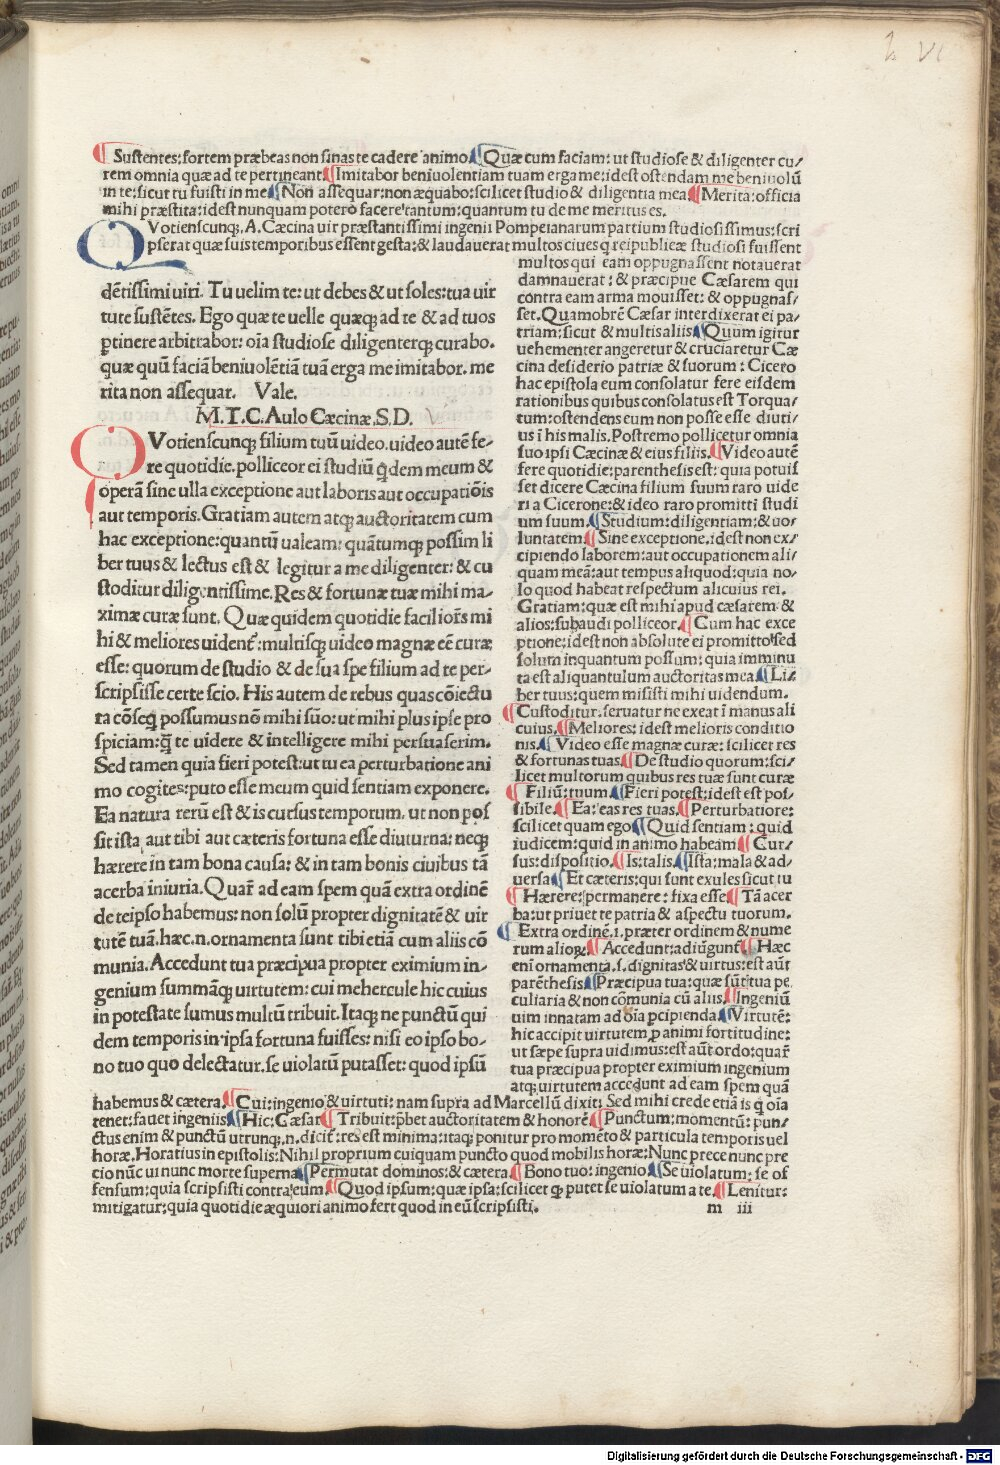 L. VI
¶Sustentes:fortem præbeas non sinas te cadere animo.¶Quæ cum faciam: ut studiose & diligenter cu-
rem omnia quæ ad te pertineant.¶Imitabor beniuolentiam tuam erga me:idest ostendam me beniuolū
in te:sicut tu fuisti in me.¶Non assequar:non æquabo:scilicet studio & diligentia mea.¶Merita:officia
mihi præstita:idest nunquam potero facere tantum:quantum tu de me meritus es.
QVotienscunq; A. Cæcina uir præstantissimi ingenii Pompeianarum partium studiosissimus:scri
pserat quæ suis temporibus essent gesta:& laudauerat multos ciues q reipublicæ studiosi fuissent
dētissimi uiri. Tu uelim te:ut debes & ut soles:tua uir
tute sustētes. Ego quæ te uelle quæq; ad te & ad tuos
ꝑtinere arbitrabor: oīa studiose diligenterq; curabo.
quæ quū faciā beniuolētiā tuā erga me imitabor. me
rita non assequar. Vale.
M.T.C.Aulo Cæcinæ.S.D. V
QVotienscunq; filium tuū uideo.uideo autē fe-
re quotidie.polliceor ei studiū qdem meum &
operā sine ulla exceptione aut laboris aut occupatiōis
aut temporis.Gratiam autem atq; auctoritatem cum
hac exceptione:quantū ualeam: quātumq; possim li
ber tuus & lectus est & legitur a me diligenter: & cu
stoditur diligentissime.Res & fortunæ tuæ mihi ma-
ximæ curæ sunt. Quæ quidem quotidie faciliores mi
hi & meliores uident:multisq; uideo magnæ eē curæ
esse: quorum de studio & de sua spe filium ad te per-
scripsisse certe scio. His autem de rebus quas cōiectu
ra cōseq possumus nō mihi sūo:ut mihi plus ipse pro
spiciam:q te uidere & intelligere mihi persuaserim.
Sed tamen quia fieri potest:ut tu ea perturbatione ani
mo cogites:puto esse meum quid sentiam exponere.
Ea natura rerū est & is cursus temporum. ut non pos
sit ista aut tibi aut cæteris fortuna esse diuturna: neq;
hærere in tam bona causa: & in tam bonis ciuibus tā
acerba iniuria.Quar ad eam spem quā extra ordinē
de teipso habemus: non solū propter dignitatē & uir
tutē tuā.hæc.n.ornamenta sunt tibi etiā cum aliis cō
munia.Accedunt tua præcipua propter eximium in-
genium summāq; uirtutem: cui mehercule hic cuius
in potestate sumus multū tribuit.Itaq; ne punctū qui
dem temporis in ipsa fortuna fuisses: nisi eo ipso bo-
no tuo quo delectatur.se uiolatū putasset: quod ipsū
multos qui eam oppugnassent notauerat
damnauerat: & præcipue Cæsarem qui
contra eam arma mouisset: & oppugnas-
set.Quamobrē Cæsar interdixerat ei pa-
triam:sicut & multis aliis.¶Quum igitur
uehementer angeretur & cruciaretur Cæ
cina desiderio patriæ & suorum: Cicero
hac epistola eum consolatur fere eisdem
rationibus quibus consolatus est Torqua-
tum:ostendens eum non posse esse diuti-
us ī his malis.Postremo pollicetur omnia
suo ipsi Cæcinæ & eius filiis.¶Video autē
fere quotidie:parenthesis est: quia potuis
set dicere Cæcina filium suum raro uide
ri a Cicerone:& ideo raro promitti studi
um suum.¶Studium:diligentiam:& uo-
luntatem.¶Sine exceptione.idest non ex-
cipiendo laborem:aut occupationem ali-
quam meā:aut tempus aliquod:quia no-
lo quod habeat respectum alicuius rei.
Gratiam:quæ est mihi apud cæsarem &
alios:subaudi polliceor.¶Cum hac exce
ptione:idest non absolute ei promitto:sed
solum inquantum possum: quia imminu
ta est aliquantulum auctoritas mea.¶Li-
ber tuus:quem misisti mihi uidendum.
¶Custoditur.seruatur ne exeat ī manus ali
cuius.¶Meliores:idest melioris conditio
nis.¶Video esse magnæ curæ: scilicet res
& fortunas tuas.¶De studio quorum:sci-
licet multorum quibus res tuæ sunt curæ
¶Filiū:tuum.¶Fieri potest:idest est pos-
sibile.¶Ea:eas res tuas.¶Perturbatiore:
scilicet quam ego.¶Quid sentiam: quid
iudicem:quid in animo habeam.¶Cur-
sus:dispositio.¶Is:talis.¶Ista:mala & ad-
uersa.¶Et cæteris:qui sunt exules sicut tu
¶Hærere:permanere: fixa esse.¶Tā acer
ba:ut priuet te patria & aspectu tuorum.
¶Extra ordinē.i.præter ordinem & nume
rum alioꝝ.¶Accedunt:adiūgunt.¶Hæc
enī ornamenta.s.dignitas & uirtus:est aūt
parēthesis.¶Præcipua tua:quæ sūt tua pe
culiaria & non cōmunia cū aliis.¶Ingeniū
uim innatam ad oīa pcipienda.¶Virtutē:
hic accipit uirtutem ꝓ animi fortitudine:
ut sæpe supra uidimus:est aūt ordo:quar
tua præcipua propter eximium ingenium
atq; uirtutem accedunt ad eam spem quā
habemus & cætera.¶Cui:ingenio & uirtuti: nam supra ad Marcellū dixit: Sed mihi crede etiā is q oīa
tenet:fauet ingeniis.¶Hic:Cæsar.¶Tribuit:pbet auctoritatem & honorē.¶Punctum:momentū: pun-
ctus enim & punctū utrunq;.n.dicit:res est minima:itaq; ponitur pro momēto & particula temporis uel
horæ.Horatius in epistolis:Nihil proprium cuiquam puncto quod mobilis horæ:Nunc prece nunc pre
cio nūc ui nunc morte suprema.¶Permutat dominos:& cætera.¶Bono tuo: ingenio.¶Se uiolatum: se of
fensum:quia scripsisti contra eum.¶Quod ipsum: quæ ipsa:scilicet q putet se uiolatum a te.¶Lenitur:
mitigatur:quia quotidie æquiori animo fert quod in eū scripsisti.
m iii
Digitalisierung gefördert durch die Deutsche Forschungsgemeinschaft - DFG